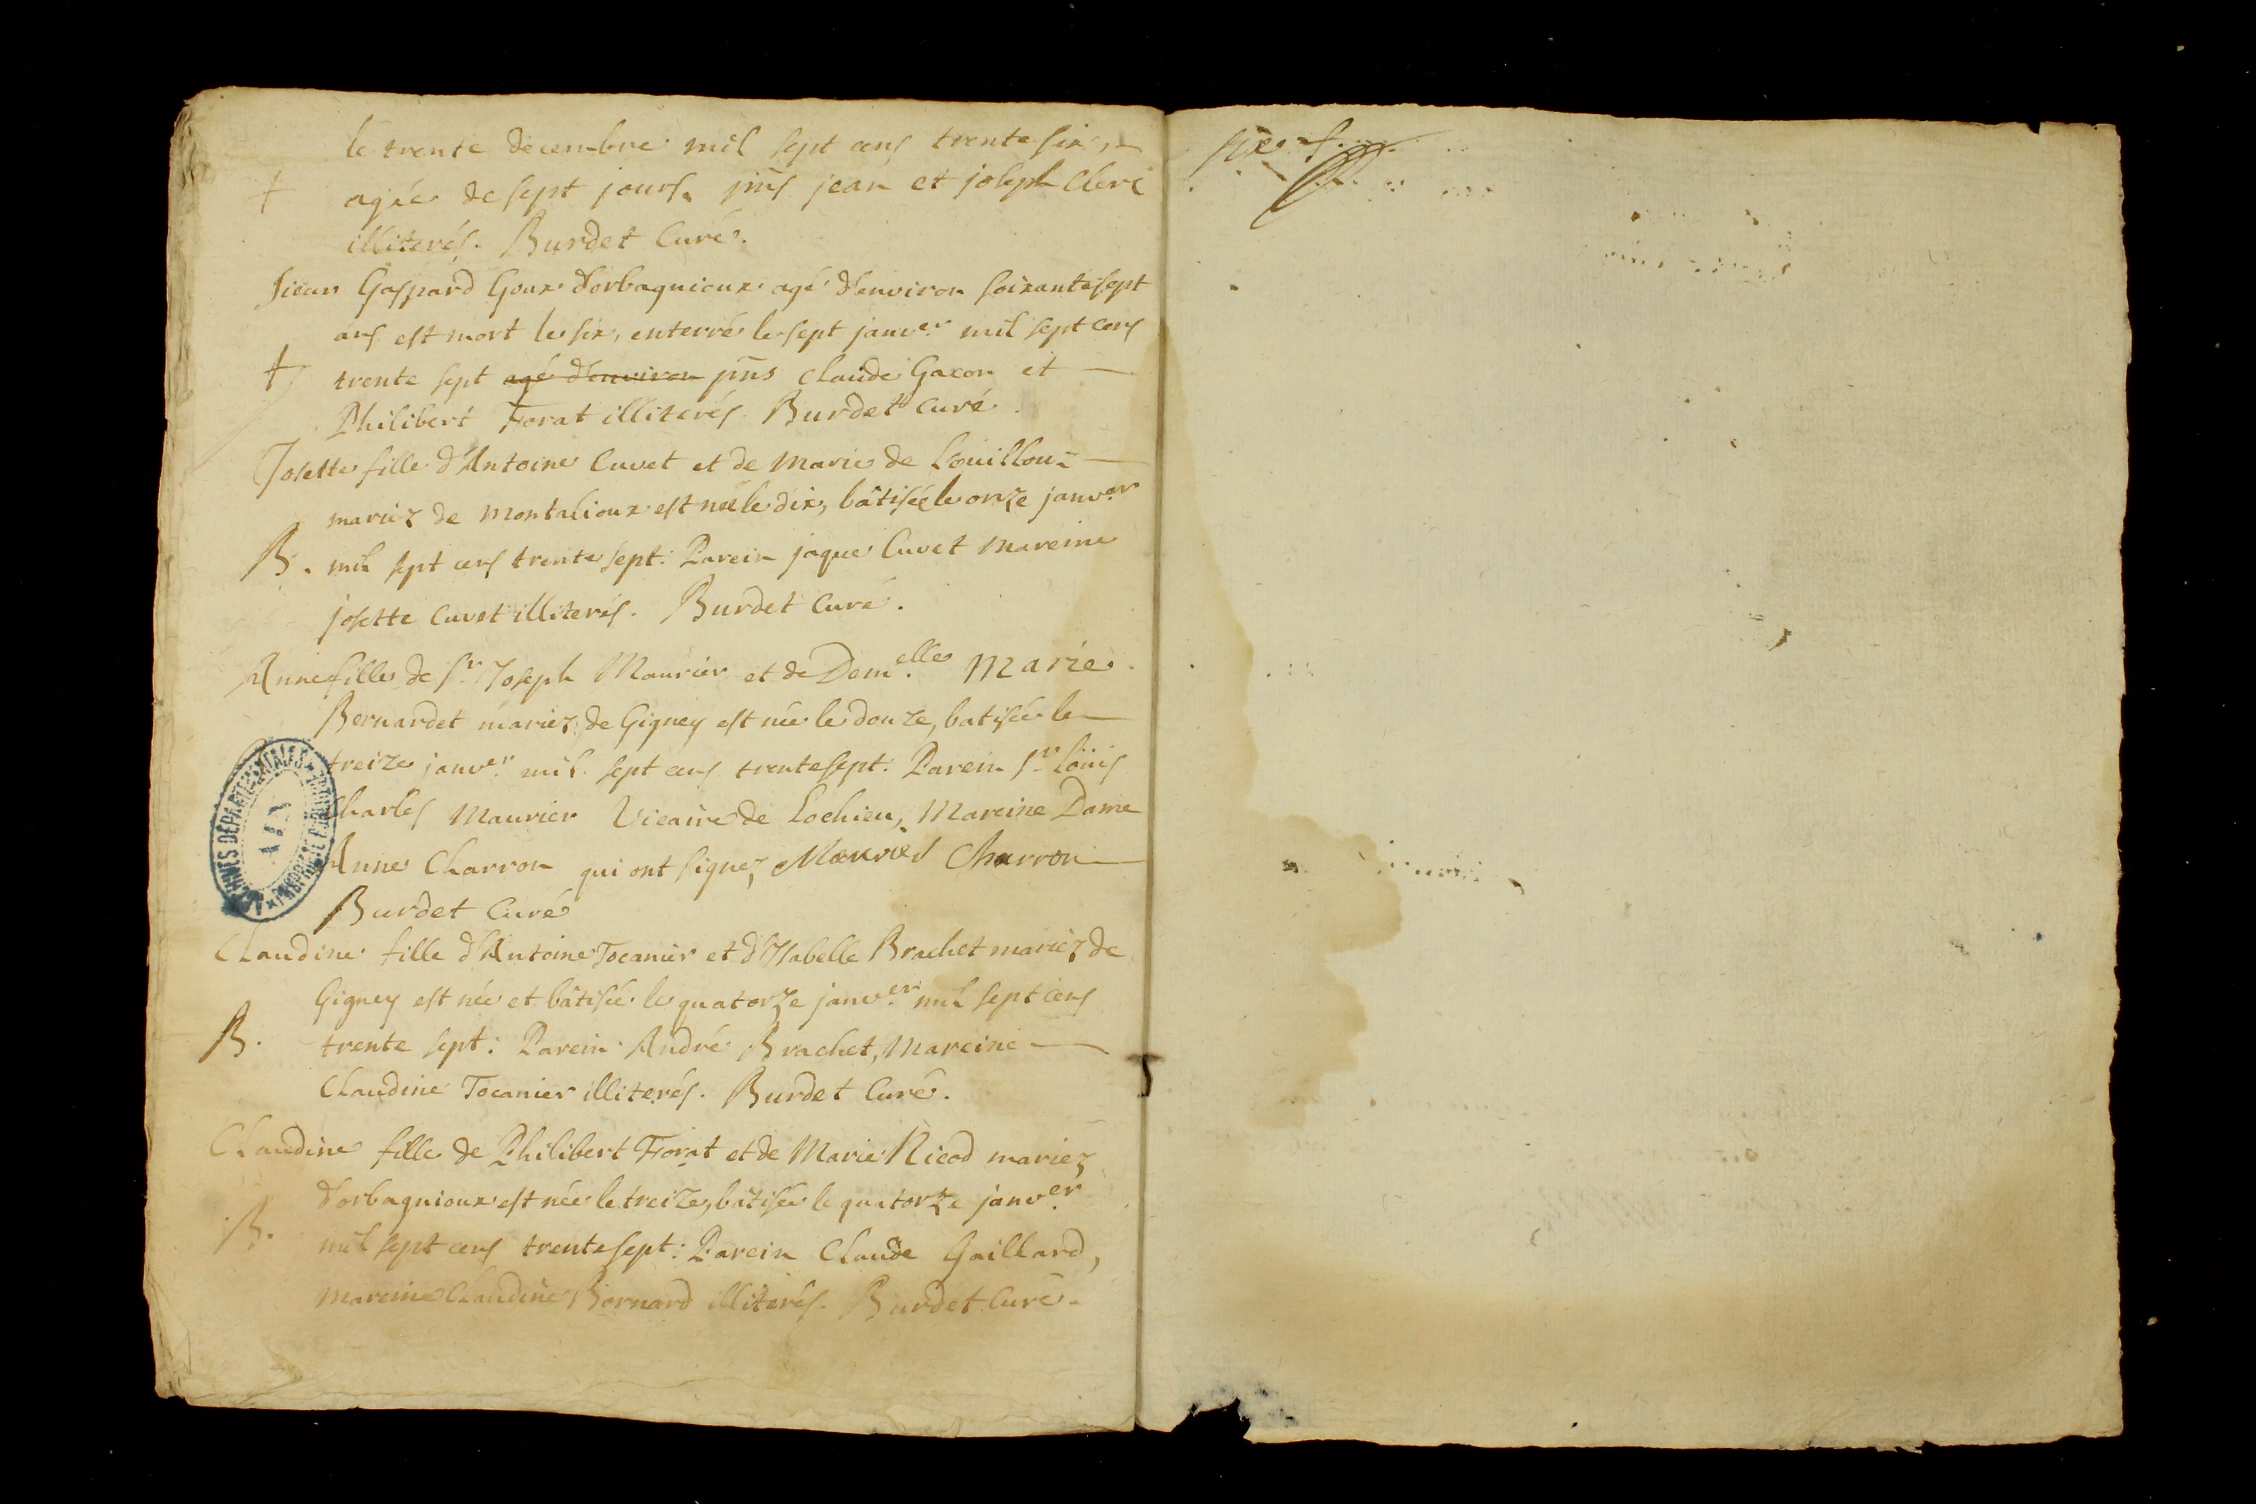 le trente decembre mil sept cens trente six,
† agée de sept jours. pñs jean et joseph Clerc
illiterés. Burdet Curé.
Sieur Gaspard Goux d'orbagnioux agé d'environ soixante sept
ans est mort le six, enterré le sept janver. mil sept cens
† trente sept agé d'environ pñs Claude Gaxon et
Philibert Forat illiterés. Burdet Curé.
Josette fille d'Antoine Cuvet et de Marie de Louilloux
mariez de Montalioux est née le dix, bâtisée le onze janver
B. mil sept cens trente sept: Parein jaque Cuvet Mareine
josette Cuvet illiterés. Burdet Curé.
Anne fille de Sr. Joseph Maurier et de Demelle. Marie
Bernardet mariez de Gigney est née le douze, batisée le
treize janver. mil sept cens trente sept: Parein Sr Loüis
Charles Maurier Vicaire de Lochieu, Mareine Dame
Anne Charron qui ont signez Maurier Charron
Burdet Curé
Claudine fille d'Antoine Tocanier et d'Isabelle Brachet mariez de
Gigney est née et bâtisée le quatorze janver. mil sept cens
B. trente sept: Parein André Brachet, Mareine
Claudine Tocanier illiterés. Burdet Curé.
Claudine fille de Philibert Forat et de Marie Nicod mariez
d'orbagnioux est née le treize, bâtisée le quatorze janver.
B. mil sept cens trente sept: Parein Claude Gaillard,
Mareine Claudine Bornard illiterés. Burdet Curé.